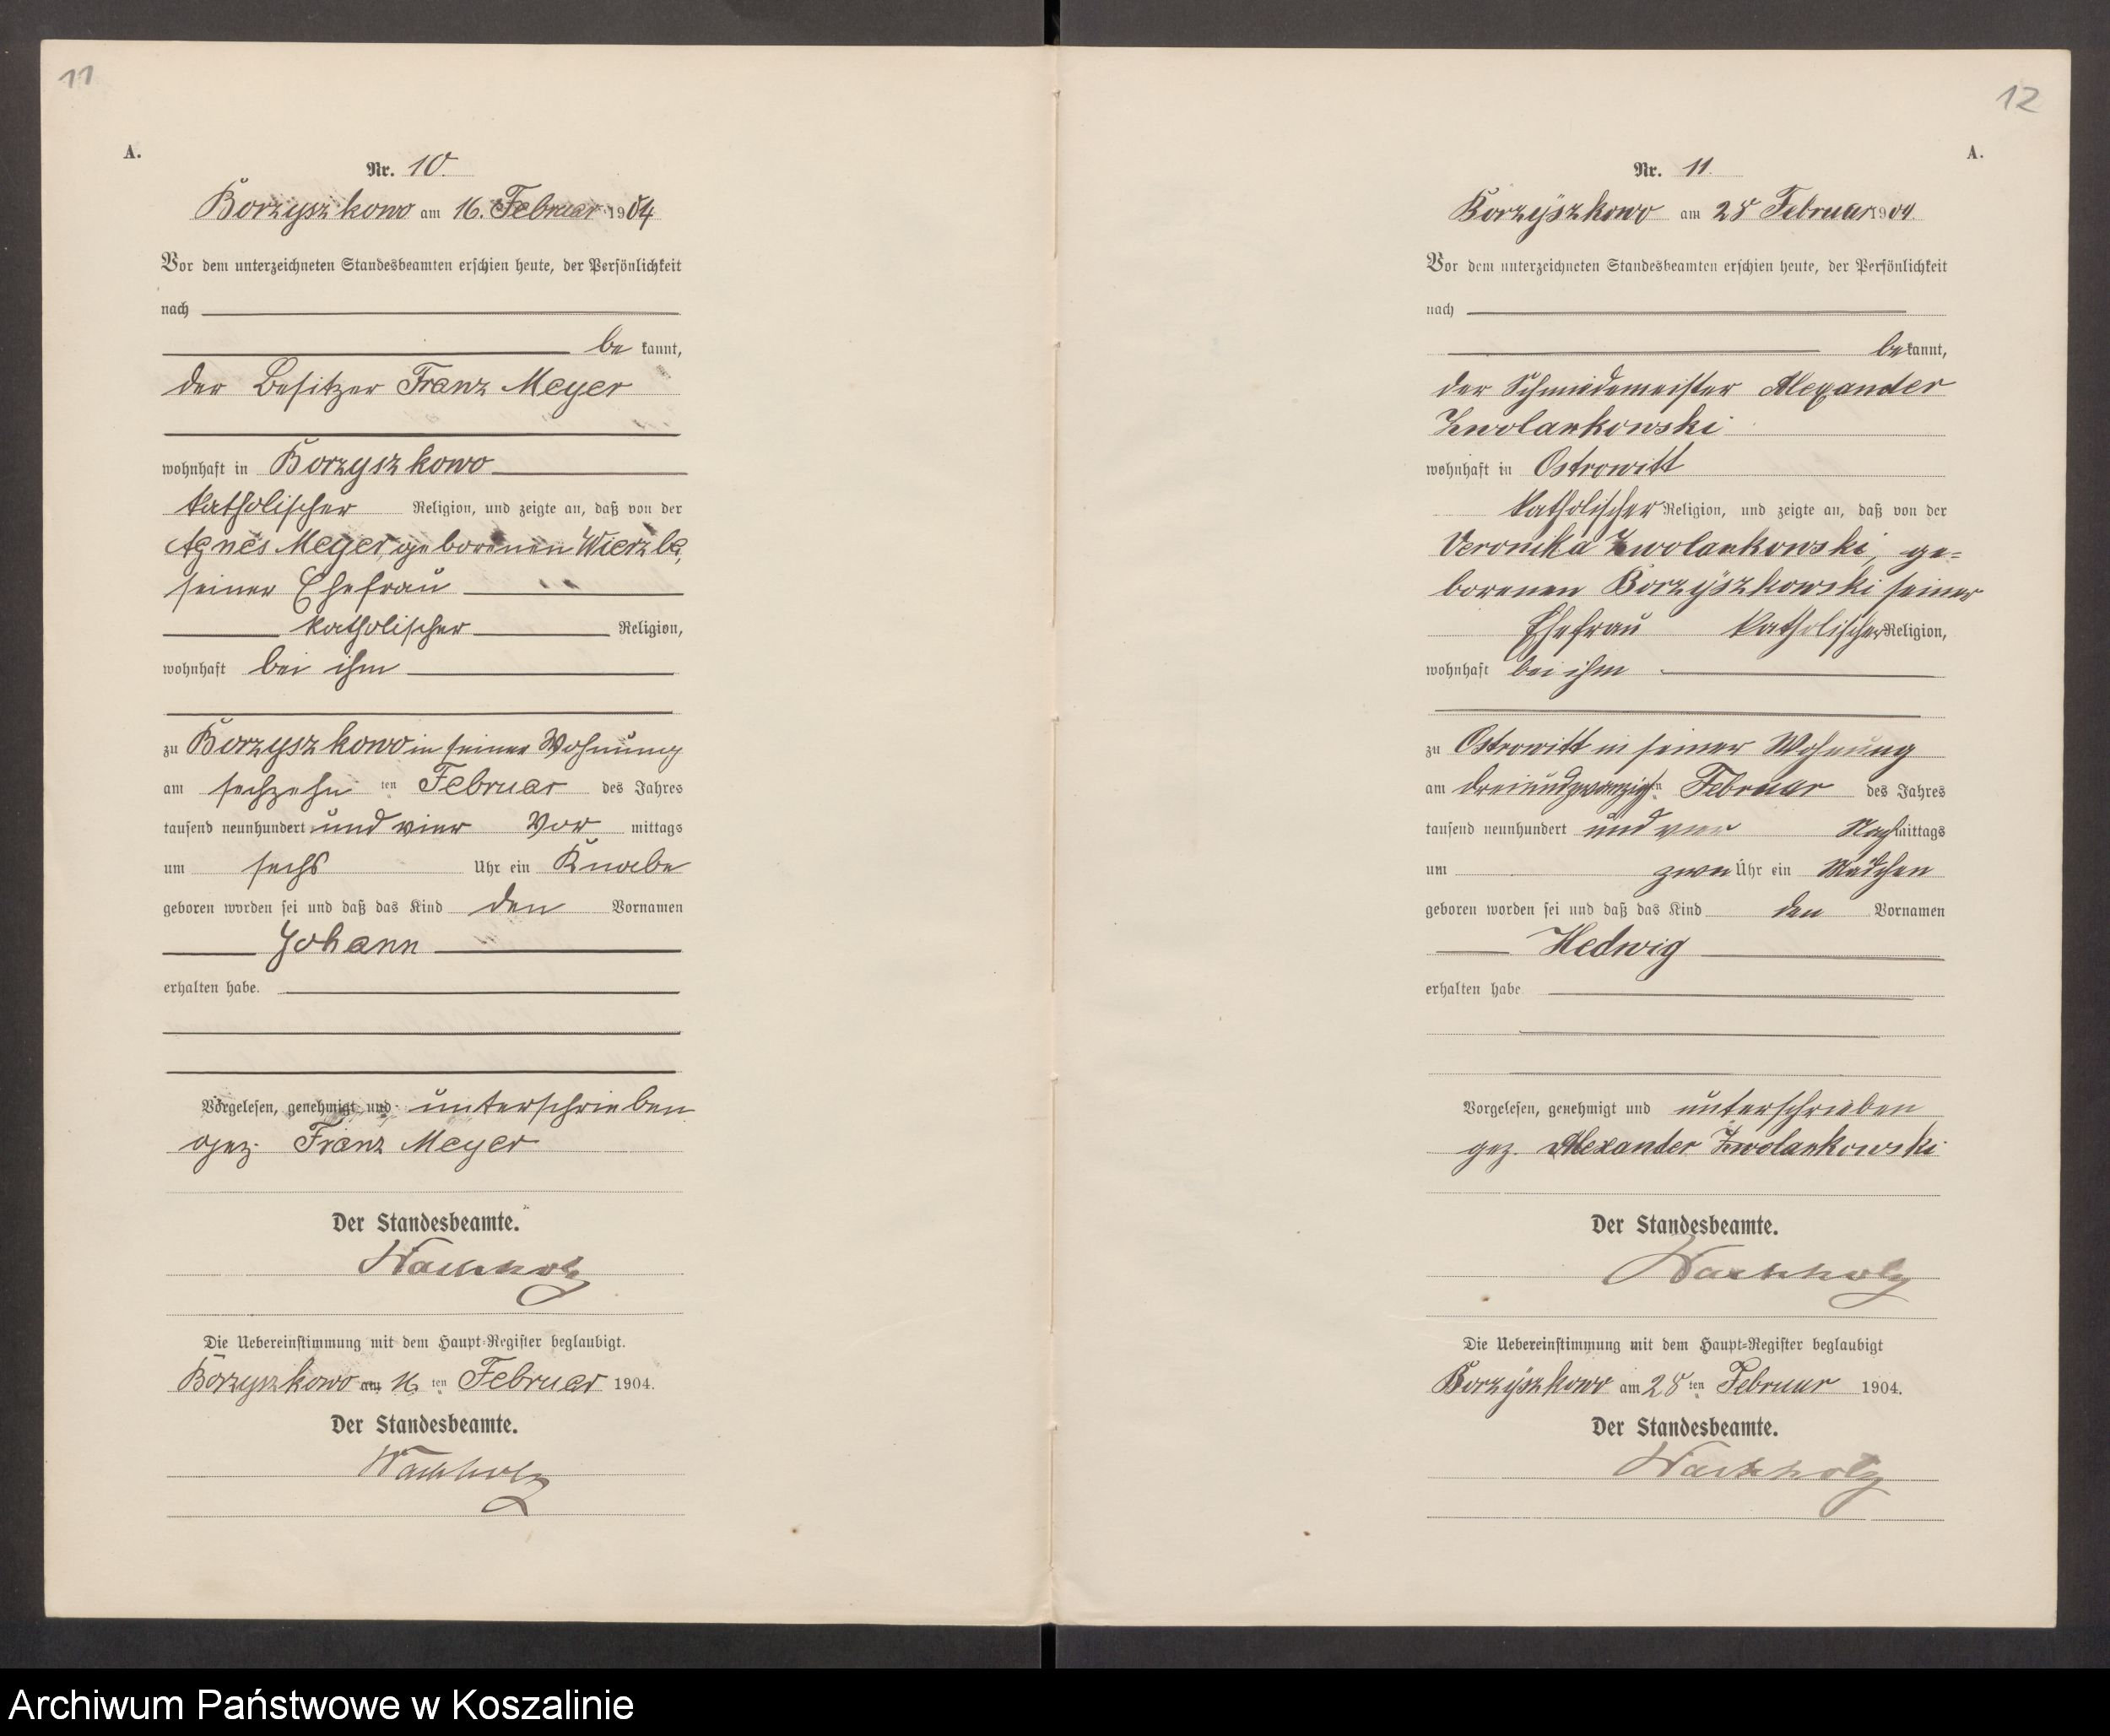 11
A.
Nr. 10.
Borzyszkowo am 16. Februar 1904
Vor dem unterzeichneten Standesbeamten erschien heute, der Persönlichkeit
nach
be kannt,
der Besitzer Franz Meyer
wohnhaft in Borzyszkowo
katholischer Religion, und zeigte an, daß von der
Agnes Meyer, geborenen Wierzba,
seiner Ehefrau
katholischer Religion,
wohnhaft bei ihm
zu Borzyszkowo in seiner Wohnung
am sechzehn ten Februar des Jahres
tausend neunhundert und vier Vor mittags
um sechs Uhr ein Knabe
geboren worden sei und daß das Kind den Vornamen
Johann
erhalten habe.
Vorgelesen, genehmigt und unterschrieben
gez. Franz Meyer
Der Standesbeamte.
Wachholz
Die Uebereinstimmung mit dem Haupt-Register beglaubigt.
Borzyszkowo am 16 ten Februar 1904.
Der Standesbeamte.
Wachholz
12
A.
Nr. 11.
Borzyszkowo am 28 Februar 1904.
Vor dem unterzeichneten Standesbeamten erschien heute, der Persönlichkeit
nach
bekannt,
der Schmiedemeister Alexander
Zwolankowski
wohnhaft in Ostrowitt
katholischer Religion, und zeigte an, daß von der
Veronika Zwolankowski, ge=
borenen Borzyszkowski seiner
Ehefrau katholischer Religion,
wohnhaft bei ihm
zu Ostrowitt in seiner Wohnung
am dreiundzwanzigsten Februar des Jahres
tausend neunhundert und vier Nachmittags
um zwei Uhr ein Mädchen
geboren worden sei und daß das Kind den Vornamen
Hedwig
erhalten habe.
Vorgelesen, genehmigt und unterschrieben
gez. Alexander Zwolankowski
Der Standesbeamte.
Wachholz
Die Uebereinstimmung mit dem Haupt-Register beglaubigt
Borzyszkowo am 28 ten Februar 1904.
Der Standesbeamte.
Wachholz
Archiwum Państwowe w Koszalinie